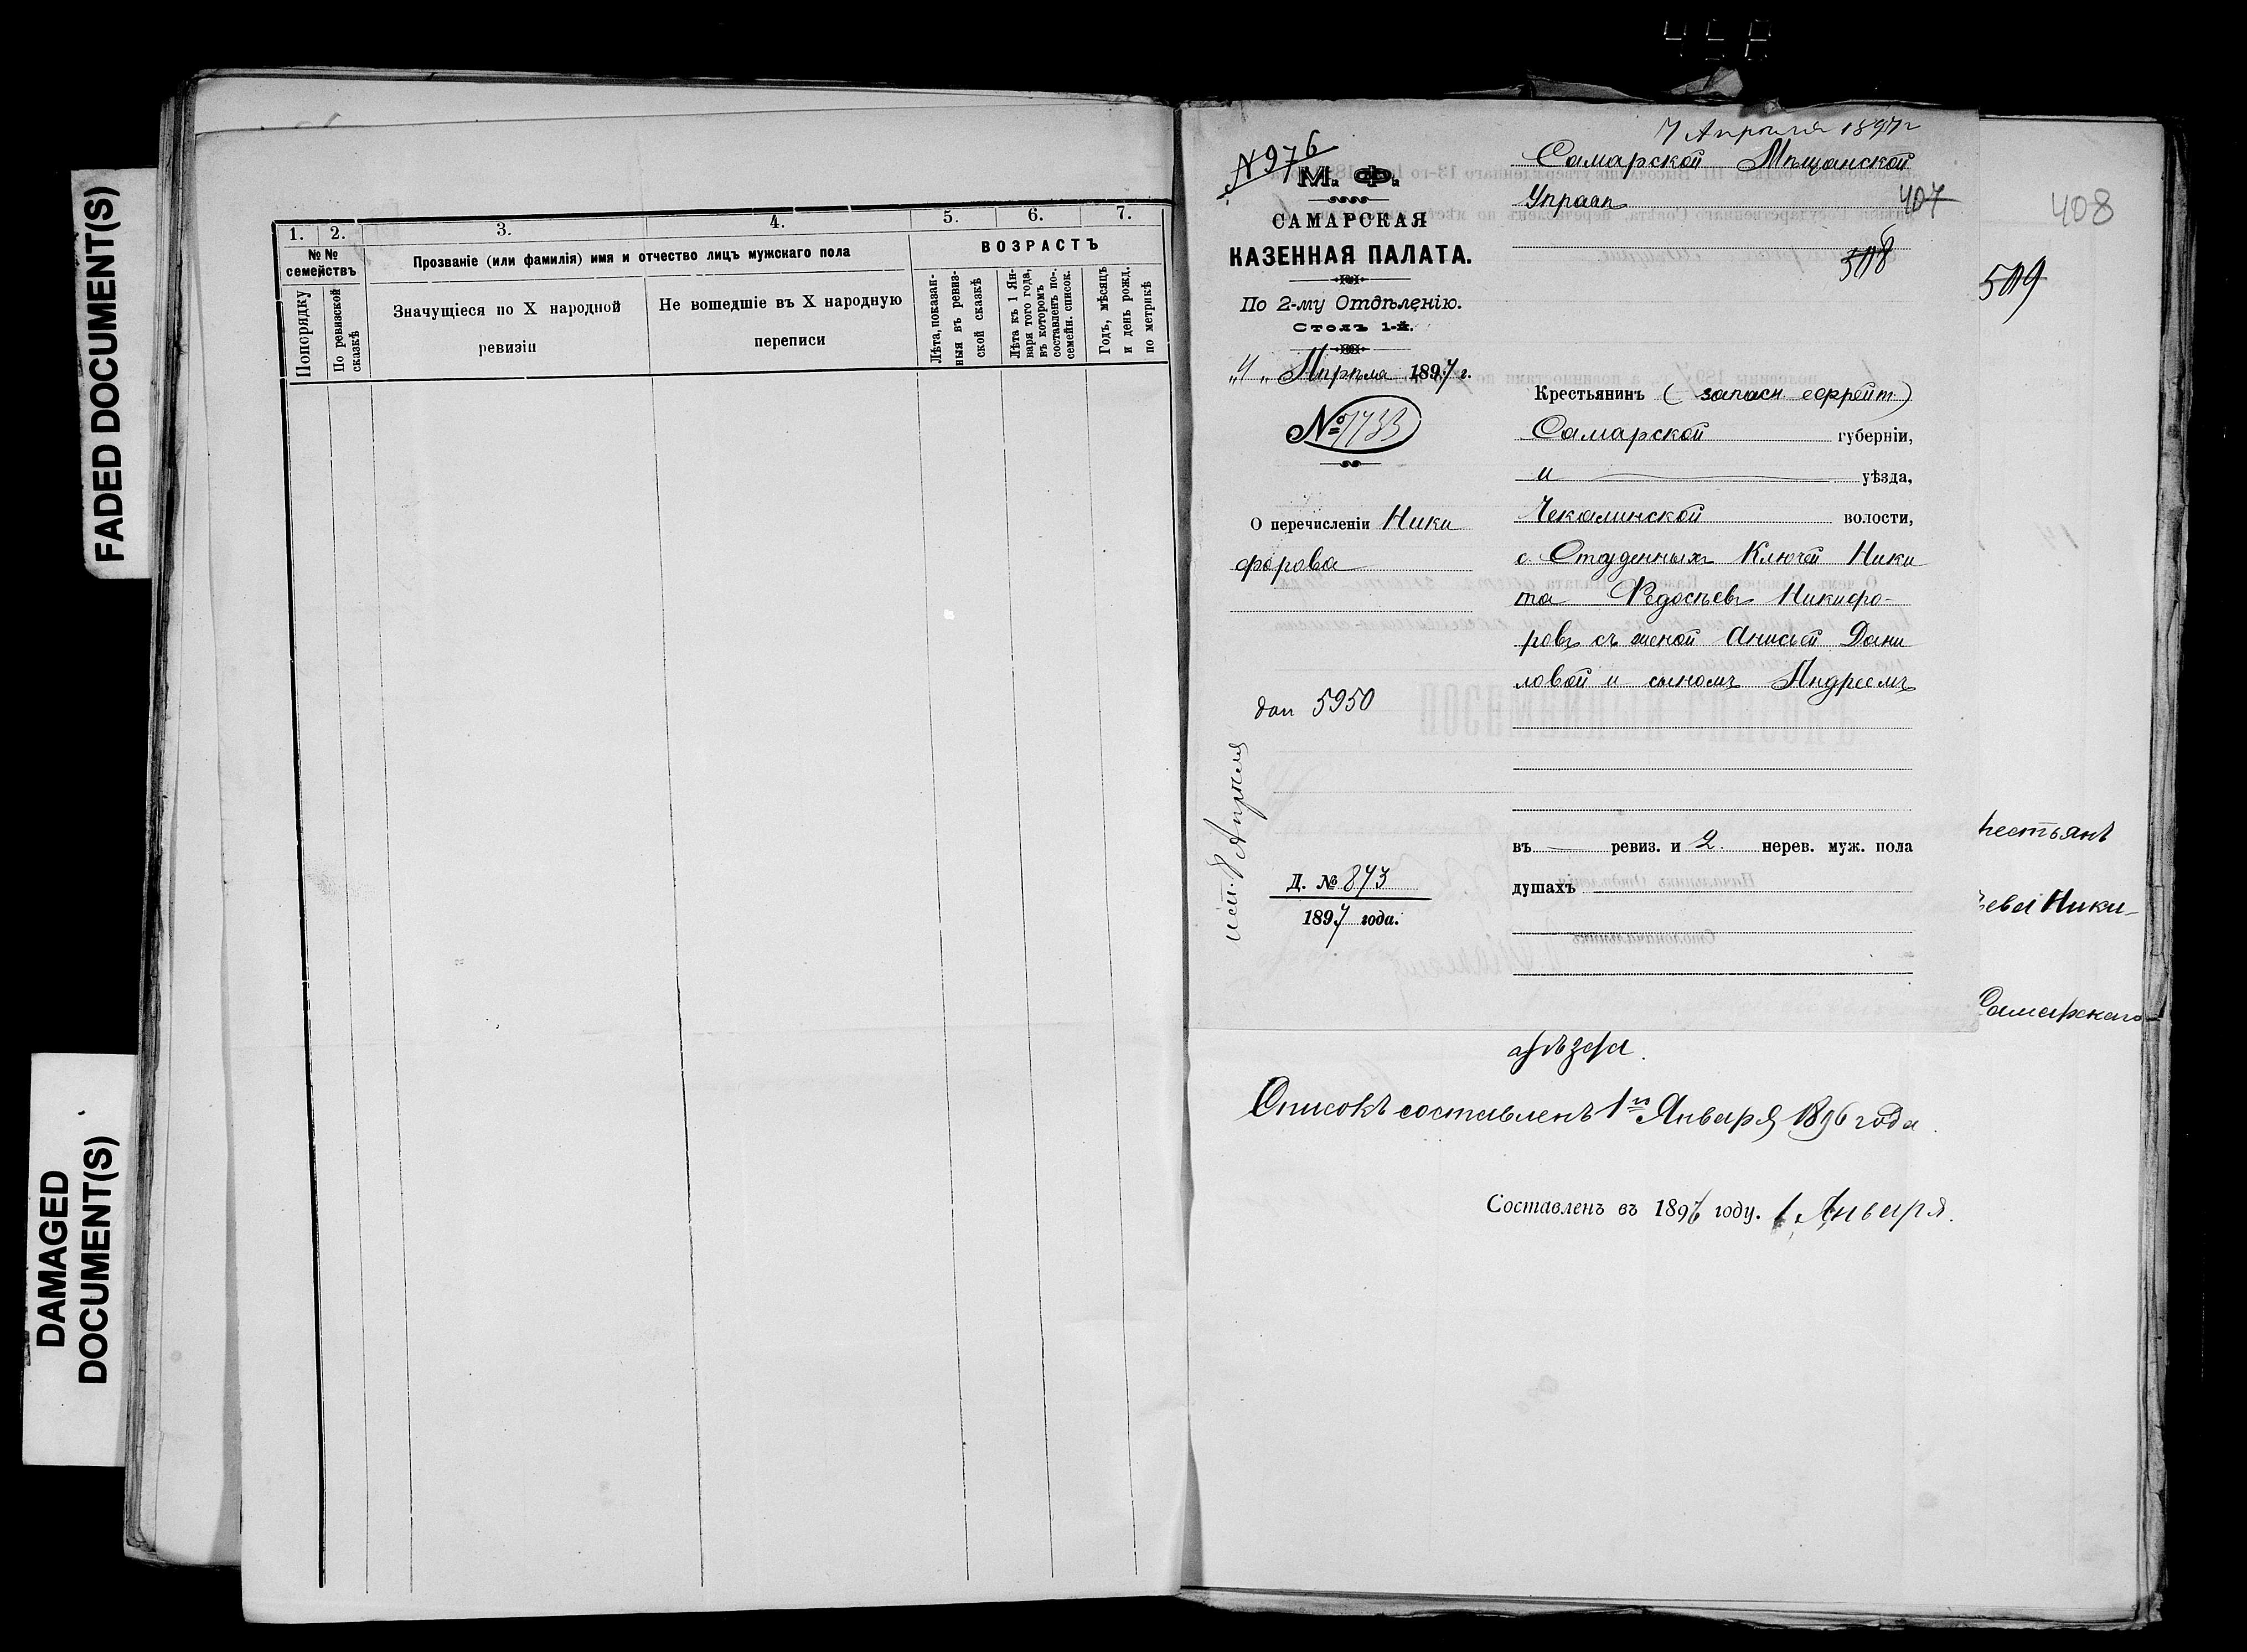 458
FADED DOCUMENT(S)
DAMAGED
DOCUMENT(S)
1. 2. 3. 4. 5. 6. 7.
№№ семействъ
Прозваніе (или фамилія) имя и отчество лицъ мужскаго пола
ВОЗРАСТЪ
Попорядку
По ревизской сказкѣ
Значущіеся по X народной
ревизіи
Не вошедшіе въ X народную
переписи
Лѣта, показан-
ныя въ ревиз-
ской сказкѣ
Лѣта къ 1 Ян-
варя того года,
въ которомъ
составленъ по-
семейн. список.
Годъ, мѣсяцъ
и день рожд.
по метрикѣ
№ 976
М. Ф.
САМАРСКАЯ
КАЗЕННАЯ ПАЛАТА.
По 2-му Отдѣленію.
Столъ 1-й.
„4„ Апрѣля 1897 г.
№ 1733
О перечисленіи Ники
форова
дол 5950
исп. 8 Апреля
Д. № 873
1897 года.
7 Апреля 1897 г
Самарской Мѣщанской
Управѣ
407
508
Крестьянинъ (запасн. ефрейт.)
Самарской губерніи,
и уѣзда,
Чекалинской волости,
с. Студенныхъ Ключей Ники
та Федосѣевъ Никифо-
ровъ съ женой Анисьей Дани
ловой и сыномъ Андреемъ
въ — ревиз. и 2 нерев. муж. пола
душахъ
408
509
рестьянъ
ева Ники-
Самарскаго
уѣзда.
Списокъ составленъ 1го Января 1896 года.
Составленъ въ 1896 году. 1 Января.